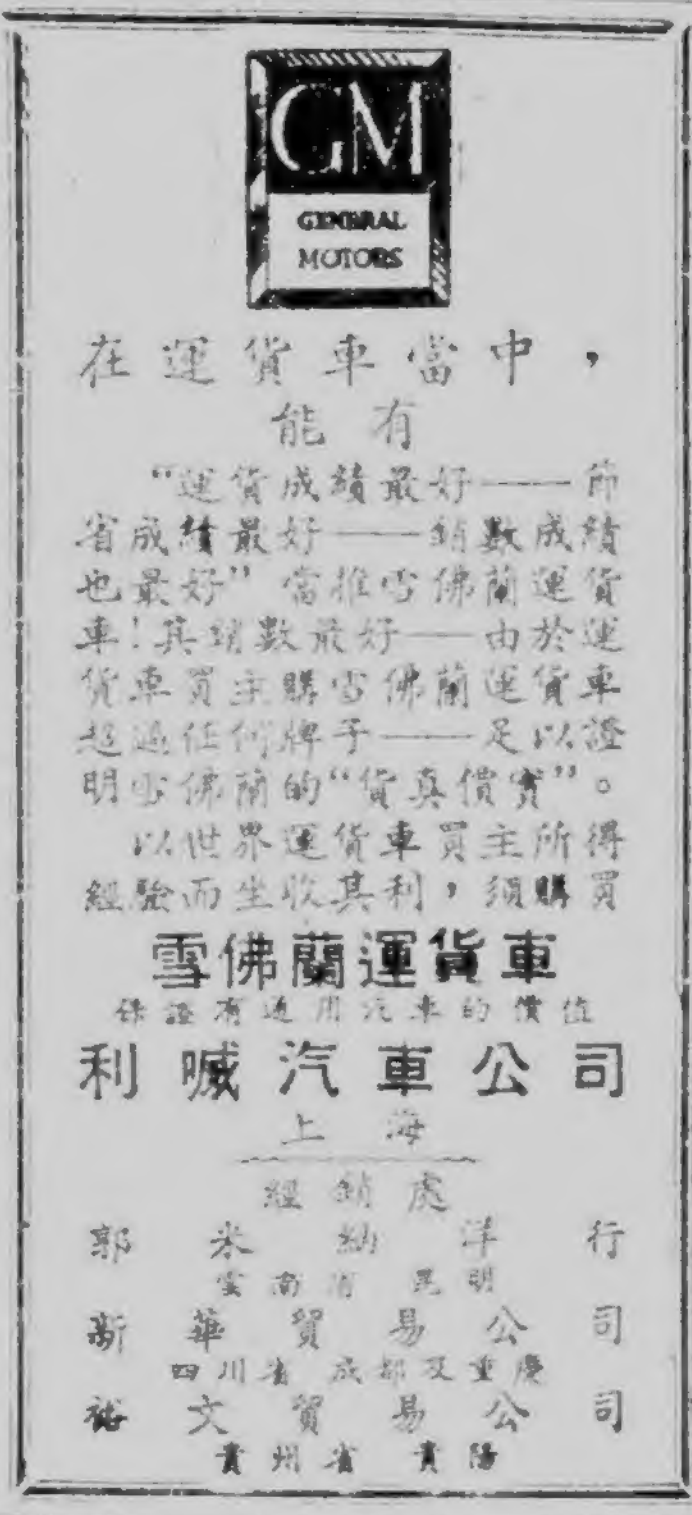 GM
GENERAL
MOTORS
在運貨車當中，
能有
“運貨成績最好——節
省成績最好——銷數成績
也最好”當推雪佛蘭運貨
車！其銷數最好——由於運
貨車買主購雪佛蘭運貨車
超過任何牌子——足以證
明雪佛蘭的“貨真價實”。
以世界運貨車買主所得
經驗而坐收其利，須購買
雪佛蘭運貨車
保證有通用汽車的價值
利喊汽車公司
上海
經銷處
郭米納洋行
雲南省 昆明
新華貿易公司
四川省 成都及重慶
裕文貿易公司
貴州省 貴陽